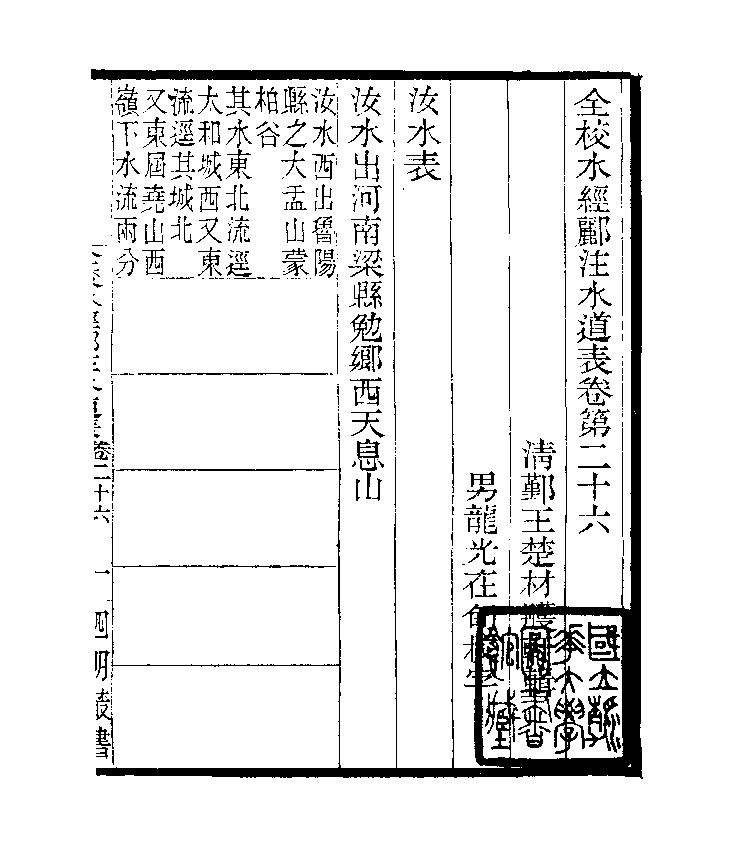 全校水經酈注水道表卷第二十六
清鄞王楚材
男龍光在
汝水表
汝水出河南梁縣勉鄉西天息山
汝水西出魯陽
縣之大盂山蒙
柏谷
其水東北流逕
太和城西又東
流逕其城北
又東屆堯山西
嶺下水流兩分
卷二十六
一
四明叢書